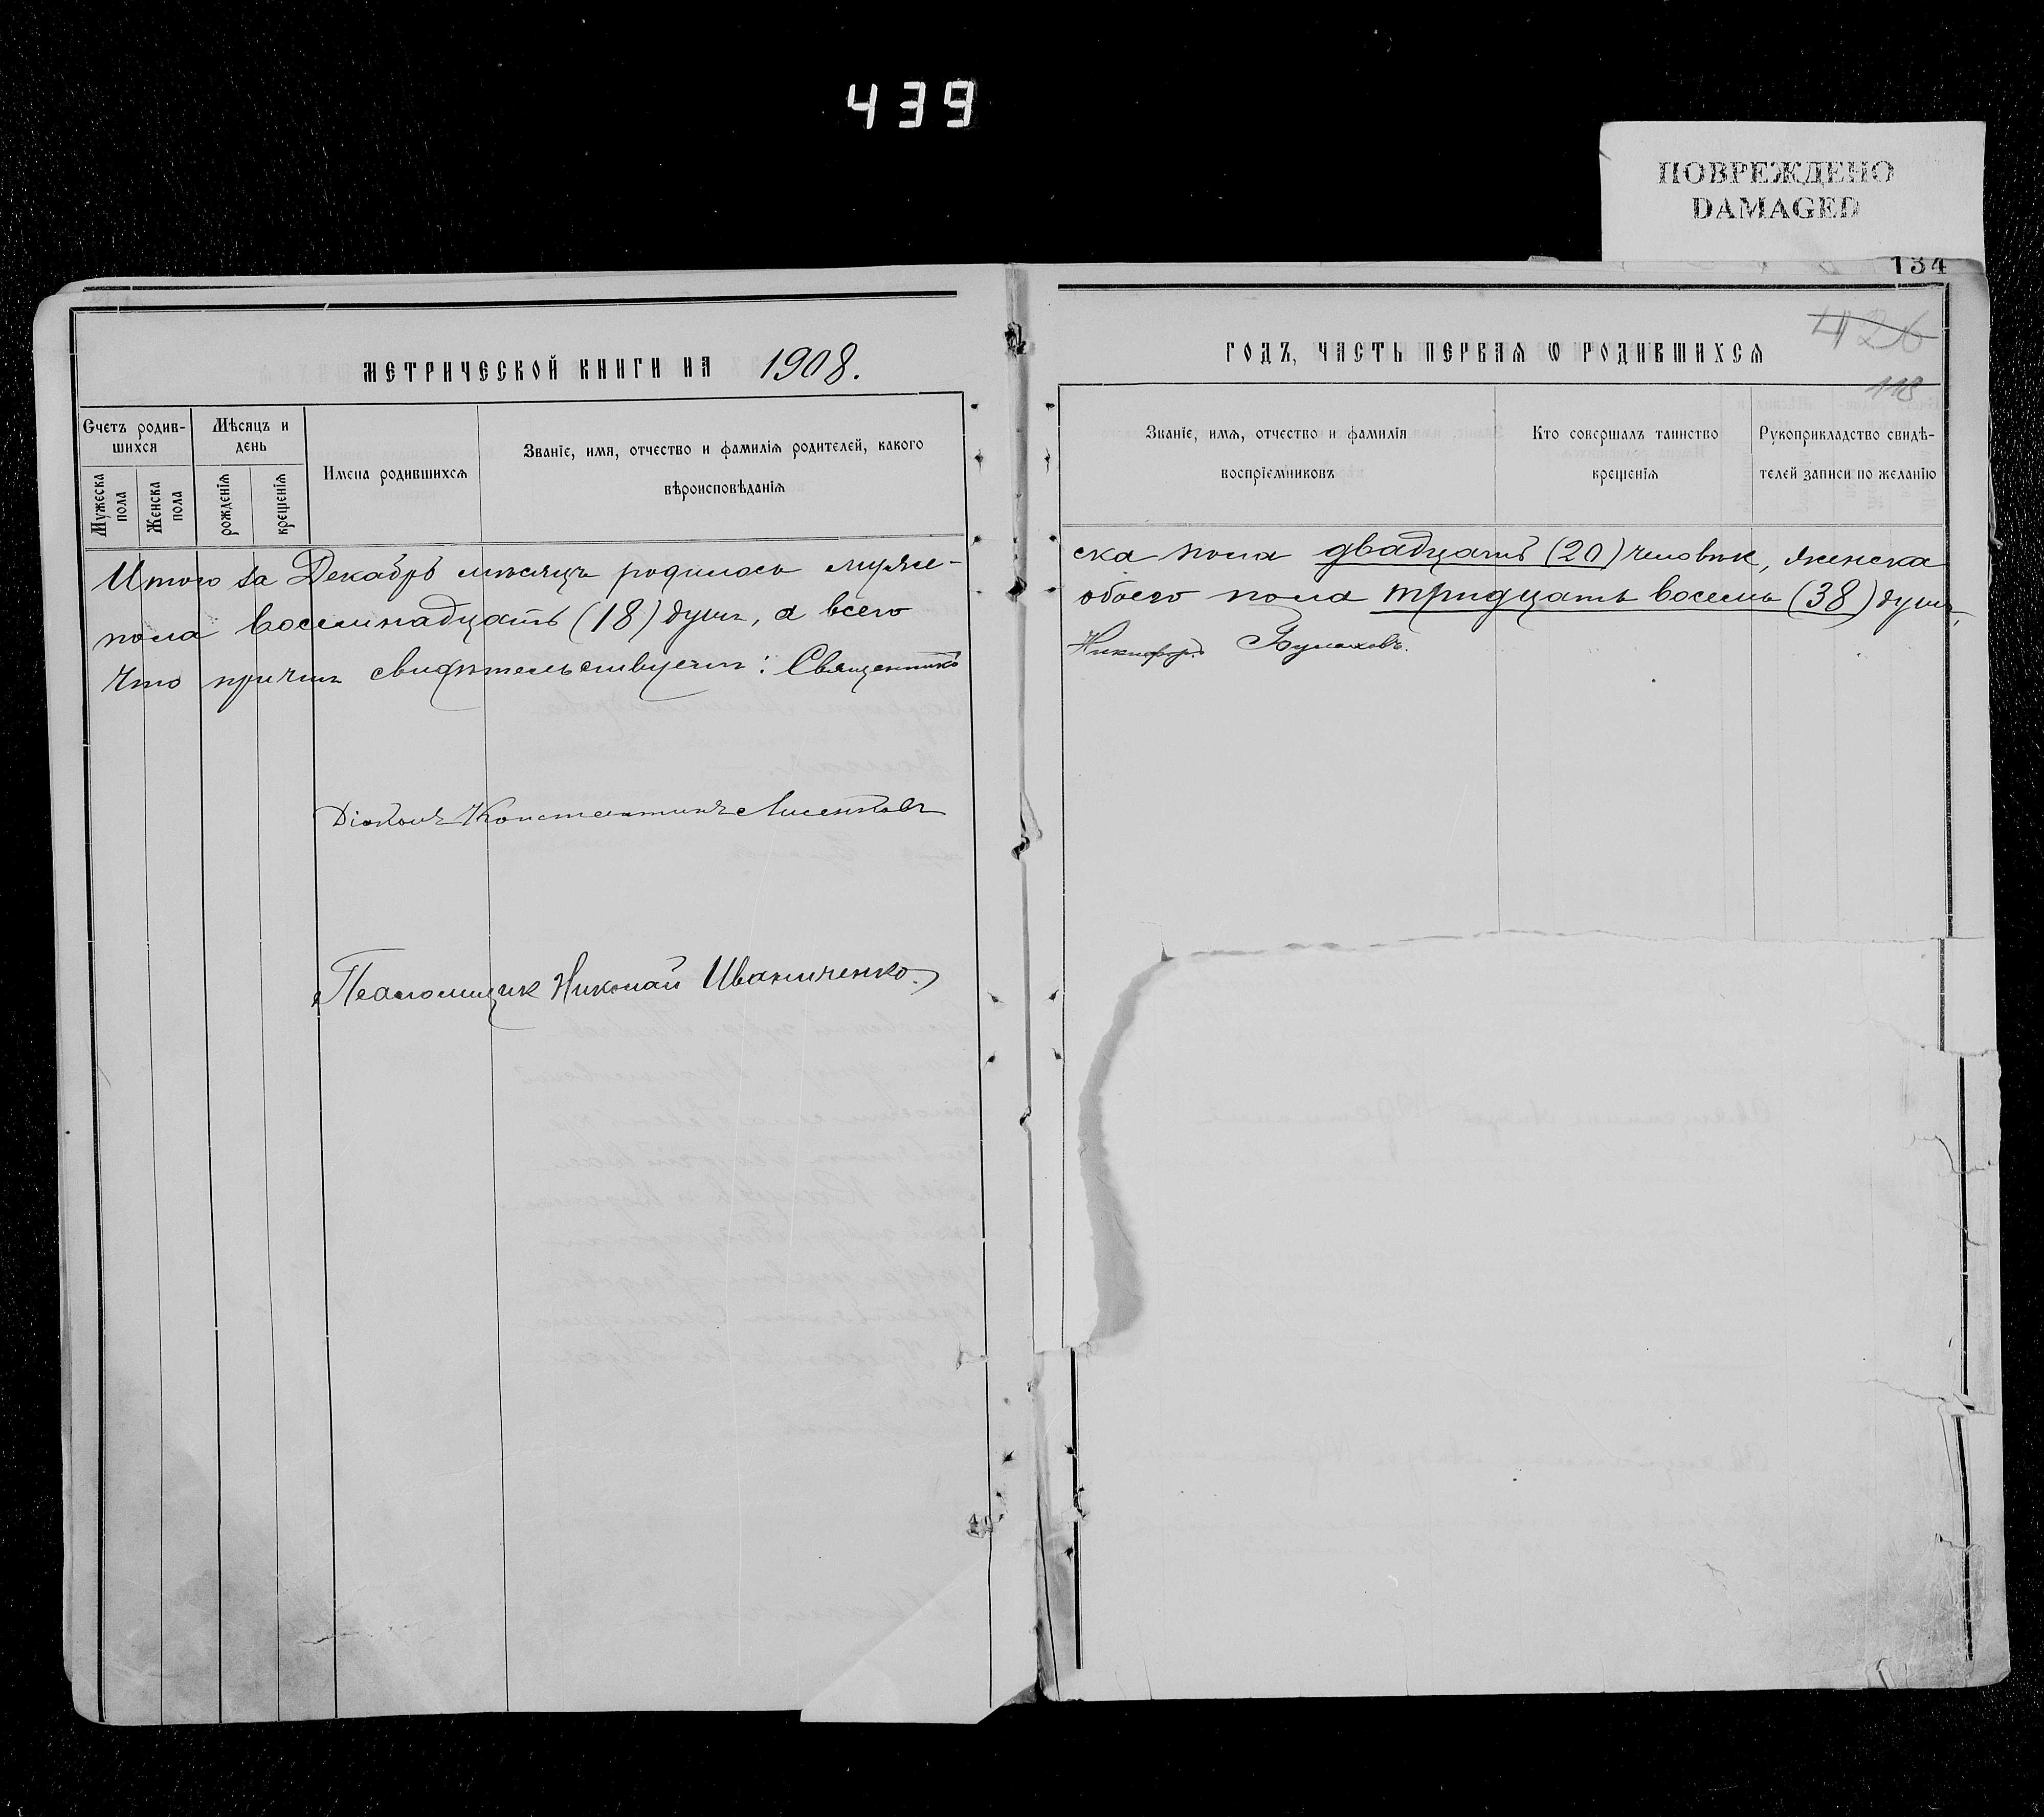 439
ПОВРЕЖДЕНО
DAMAGED
134
МЕТРИЧЕСКОЙ КНИГИ НА 1908.
Счетъ родив-
шихся
Мѣсяцъ и
день
Мужеска
пола
Женска
пола
рожденія
крещенія
Имена родившихся
Званіе, имя, отчество и фамилія родителей, какого
вѣроисповѣданія
Итого за Декабрь мѣсяцъ родилось муже-
пола восемнадцать (18) душъ, а всего
Что причтъ свидѣтельствуетъ: Священникъ
Діаконъ Константинъ Лисенковъ
Псаломщик Николай Иваниченко.
426
ГОДЪ, ЧАСТЬ ПЕРВАЯ Ѡ РОДИВШИХСЯ
118
Званіе, имя, отчество и фамилія
воспріемниковъ
Кто совершалъ таинство
крещенія
Рукоприкладство свидѣ-
телей записи по желанію
ска пола двадцать (20) человѣк, женска
обоего пола тридцать восемь (38) душъ,
Никифоръ Булаховъ.